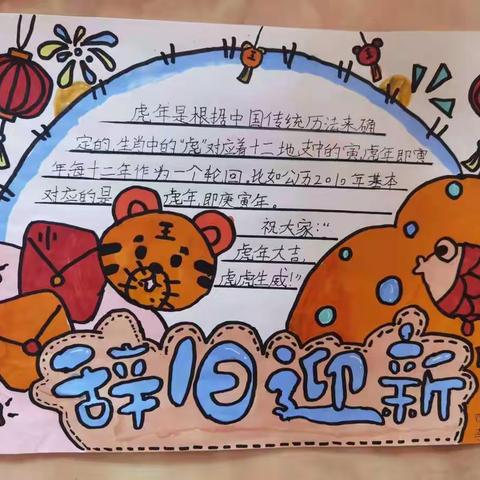 虎年是根据中国传统历法来确
定的，生肖中的“虎”对应着十二地支中的寅，虎年即寅
年每十二年作为一个轮回，比如公历2010年基本
对应的是虎年，即庚寅年。
祝大家：“
虎年大吉
虎虎生威！”
辞旧迎新